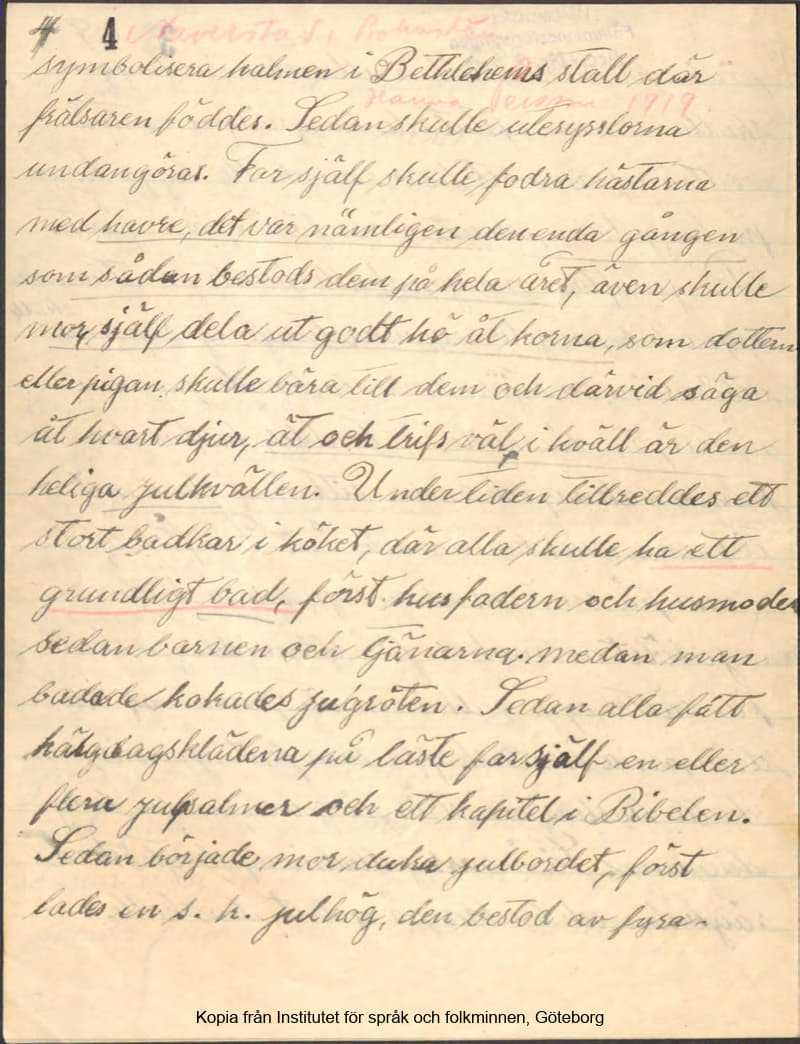 4
symbolisera halmen i Bethlehems stall där
Hanna Persson 1919.
frälsaren föddes. Sedan skulle utesysslorna
undangöras. Far själf skulle fodra hästarna
med havre, det var nämligen den enda gången
som sådan bestods dem på hela året, även skulle
mor själf dela ut godt hö åt korna, som dottern
eller pigan skulle bära till dem och därvid säga
åt hvart djur, ät och trifs väl, i kväll är den
heliga julkvällen. Under tiden tillreddes ett
stort badkar i köket, där alla skulle ha ett
grundligt bad, först husfadern och husmoder
sedan barnen och tjänarna. medan man
badade kokades julgröten. Sedan alla fått
hälgdagsklädena på läste far själf en eller
flera julpsalmer och ett kapitel i Bibelen.
Sedan började mor duka julbordet, först
lades en s. k. julhög, den bestod av fyra-
Kopia från Institutet för språk och folkminnen, Göteborg